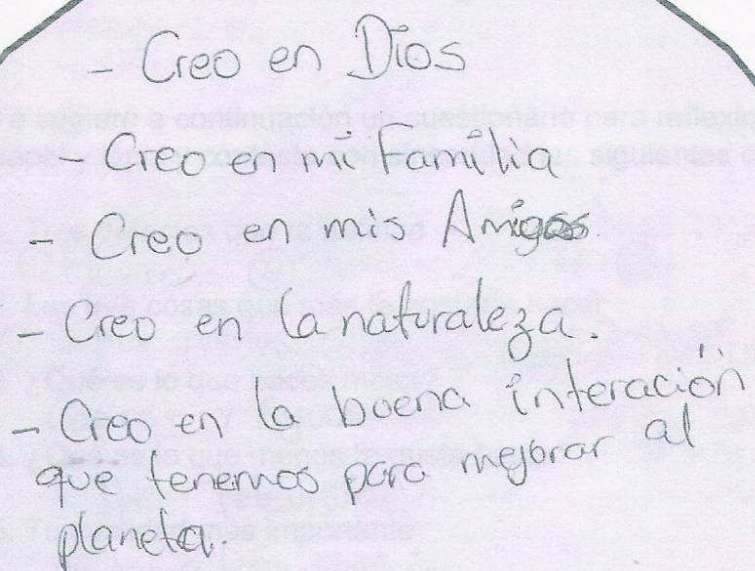 - Creo en Dios
- Creo en mi Familia
- Creo en mis Amigos
- Creo en la naturaleza.
- Creo en la buena interación
que tenemos para mejorar al
planeta.